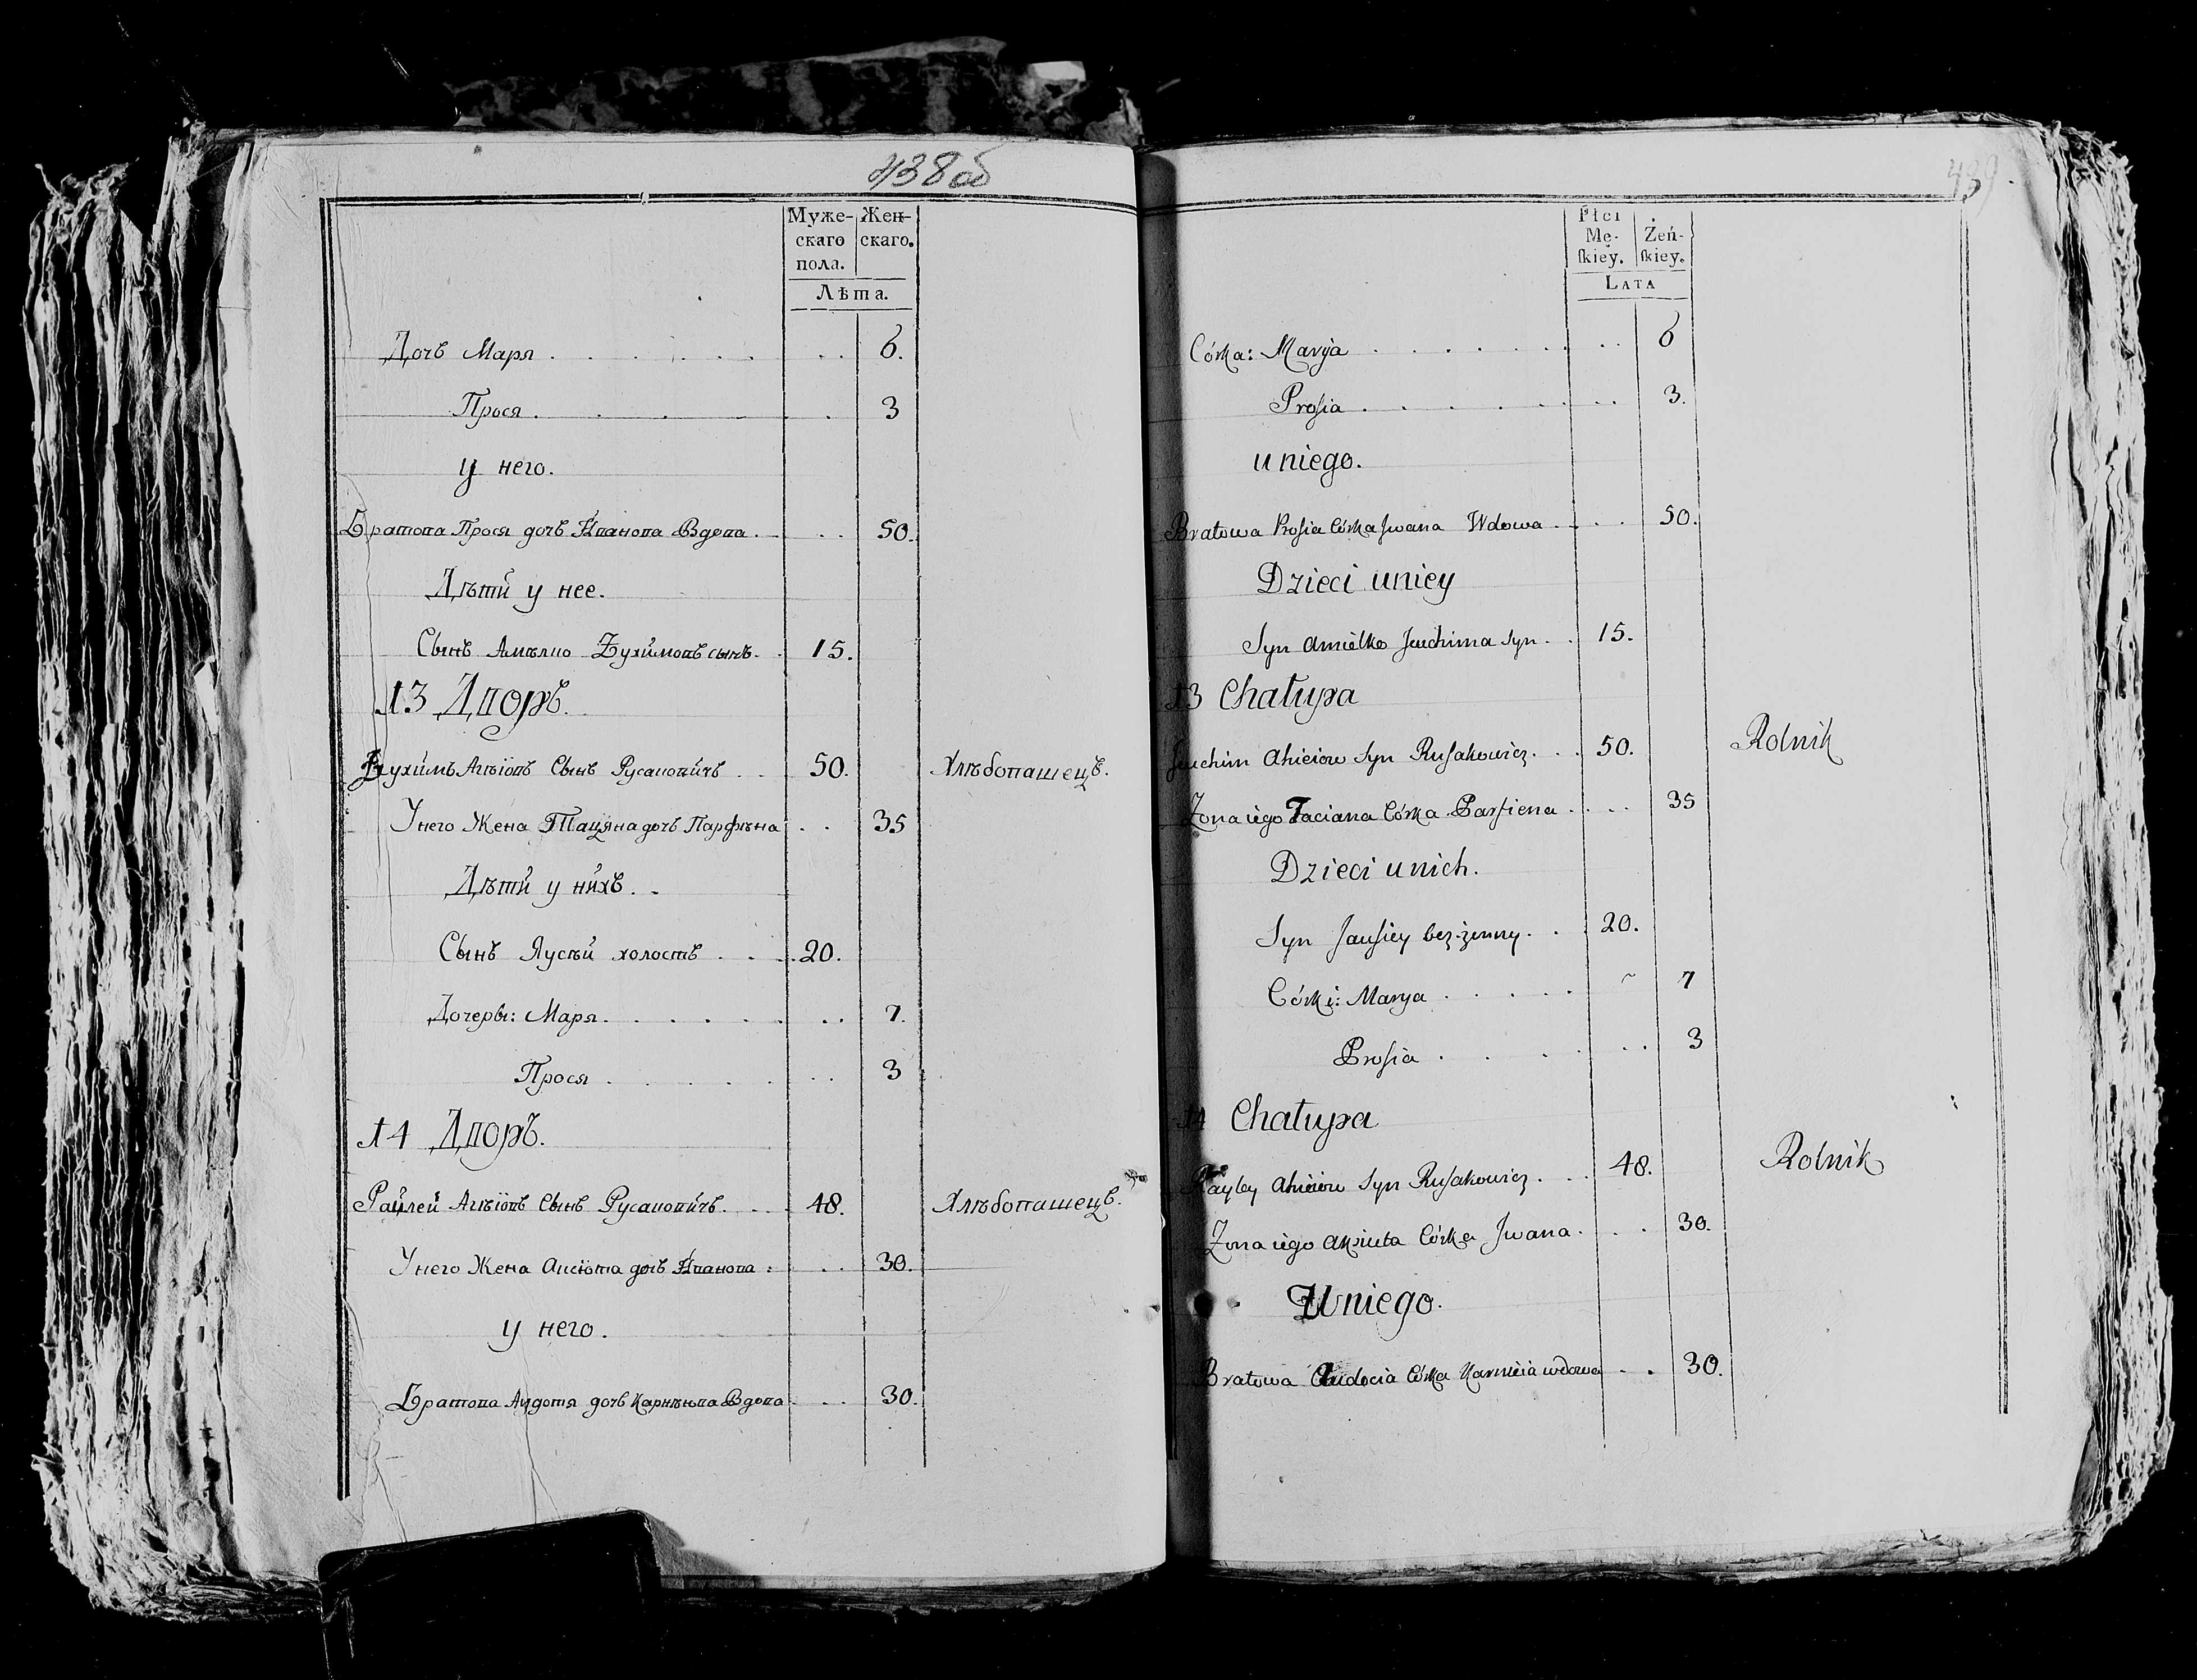 438 об
Муже- Жен-
скаго скаго.
пола.
Лѣта.
Дочь Маря . . . . . . . . . 6.
Прося . . . . . . . 3
у него.
Братова Прося дочь Иванова Вдова . . . 50.
Дѣти у нее.
Сынъ Амѣлко Еухимовъ сынъ . 15.
13 Дворъ.
Еухимъ Агѣіовъ Сынъ Русаковичъ . . 50. Хлѣбопашецъ.
У него Жена Тацяна дочь Парфѣна . . 35
Дѣти у нихъ . .
Сынъ Яусѣй холостъ . . . 20.
Дочеры: Маря . . . . . . . 7.
Прося . . . . . . . 3
14 Дворъ.
Раулей Агѣіовъ Сынъ Русаковичъ . . . 48. Хлѣбопашецъ.
У него Жена Аксюта дочь Иванова : . . 30.
у него.
Братова Аудотя дочь Карнѣюва Вдова . . . 30.
439
Płci
Mę- Żeń-
ſkiey. ſkiey.
LATA
Córka: Maryja . . . . . . . . 6
Prosia . . . . . . . . 3.
u niego.
Bratowa Prosia Córka Jwana Wdowa . . . 50.
Dzieci u niey
Syn Amiełko Jeuchima Syn . . 15.
13 Chałupa
Jeuchim Ahieiow Syn Rusakowicz . . . 50. Rolnik
Zona iego Taciana Córka Parfiena . . . . 35
Dzieci u nich.
Syn Jausiey bez-żenny . . . 20.
Córki: Marya . . . . . ~ 7
Prosia . . . . . . 3
14 Chałupa
Rayley Ahieiow Syn Rusakowicz . . . 48. Rolnik
Zona iego Aksiuta Córka Jwana . . . 30.
U niego.
Bratowa Audocia Córka Karnieia wdowa . . 30.